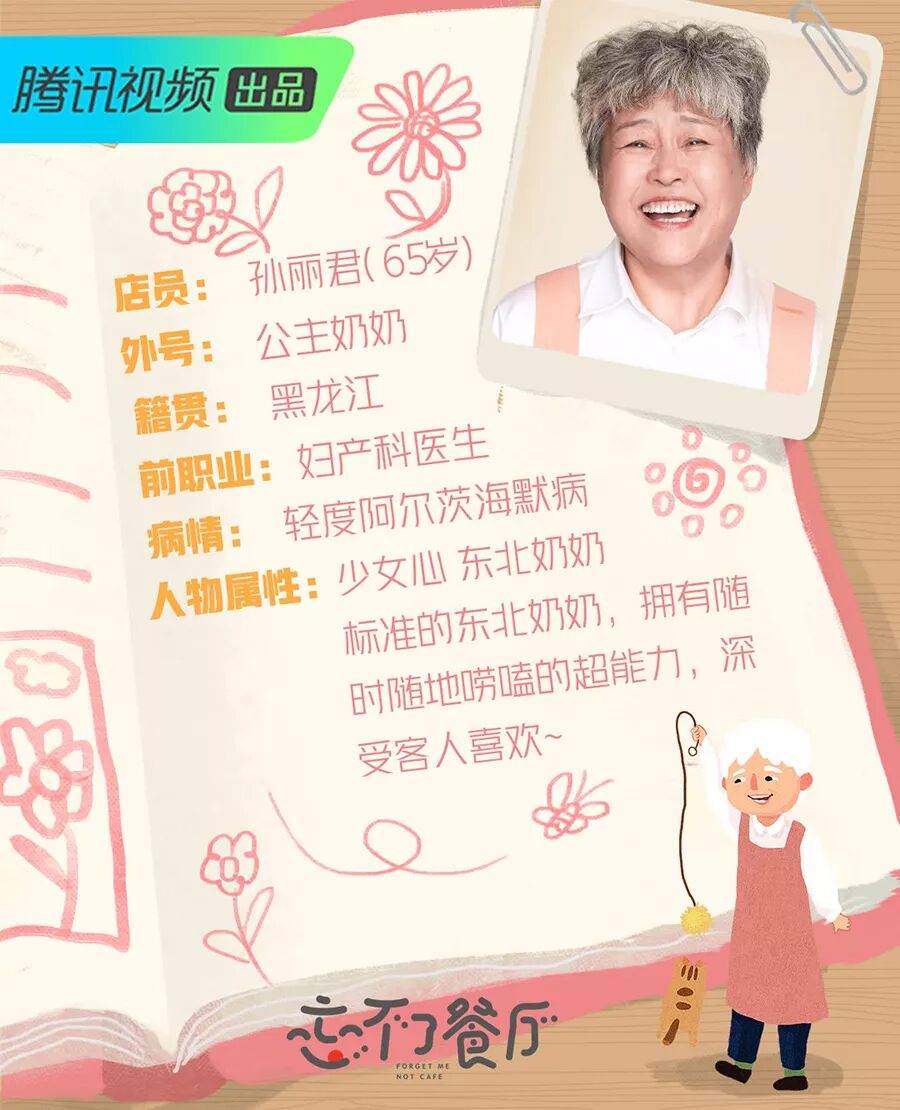 腾讯视频 出品
店员： 孙丽君( 65岁)
外号： 公主奶奶
籍贯： 黑龙江
前职业： 妇产科医生
病情： 轻度阿尔茨海默病
人物属性： 少女心 东北奶奶
标准的东北奶奶，拥有随
时随地唠嗑的超能力，深
受客人喜欢~
忘不了餐厅
FORGET ME
NOT CAFE